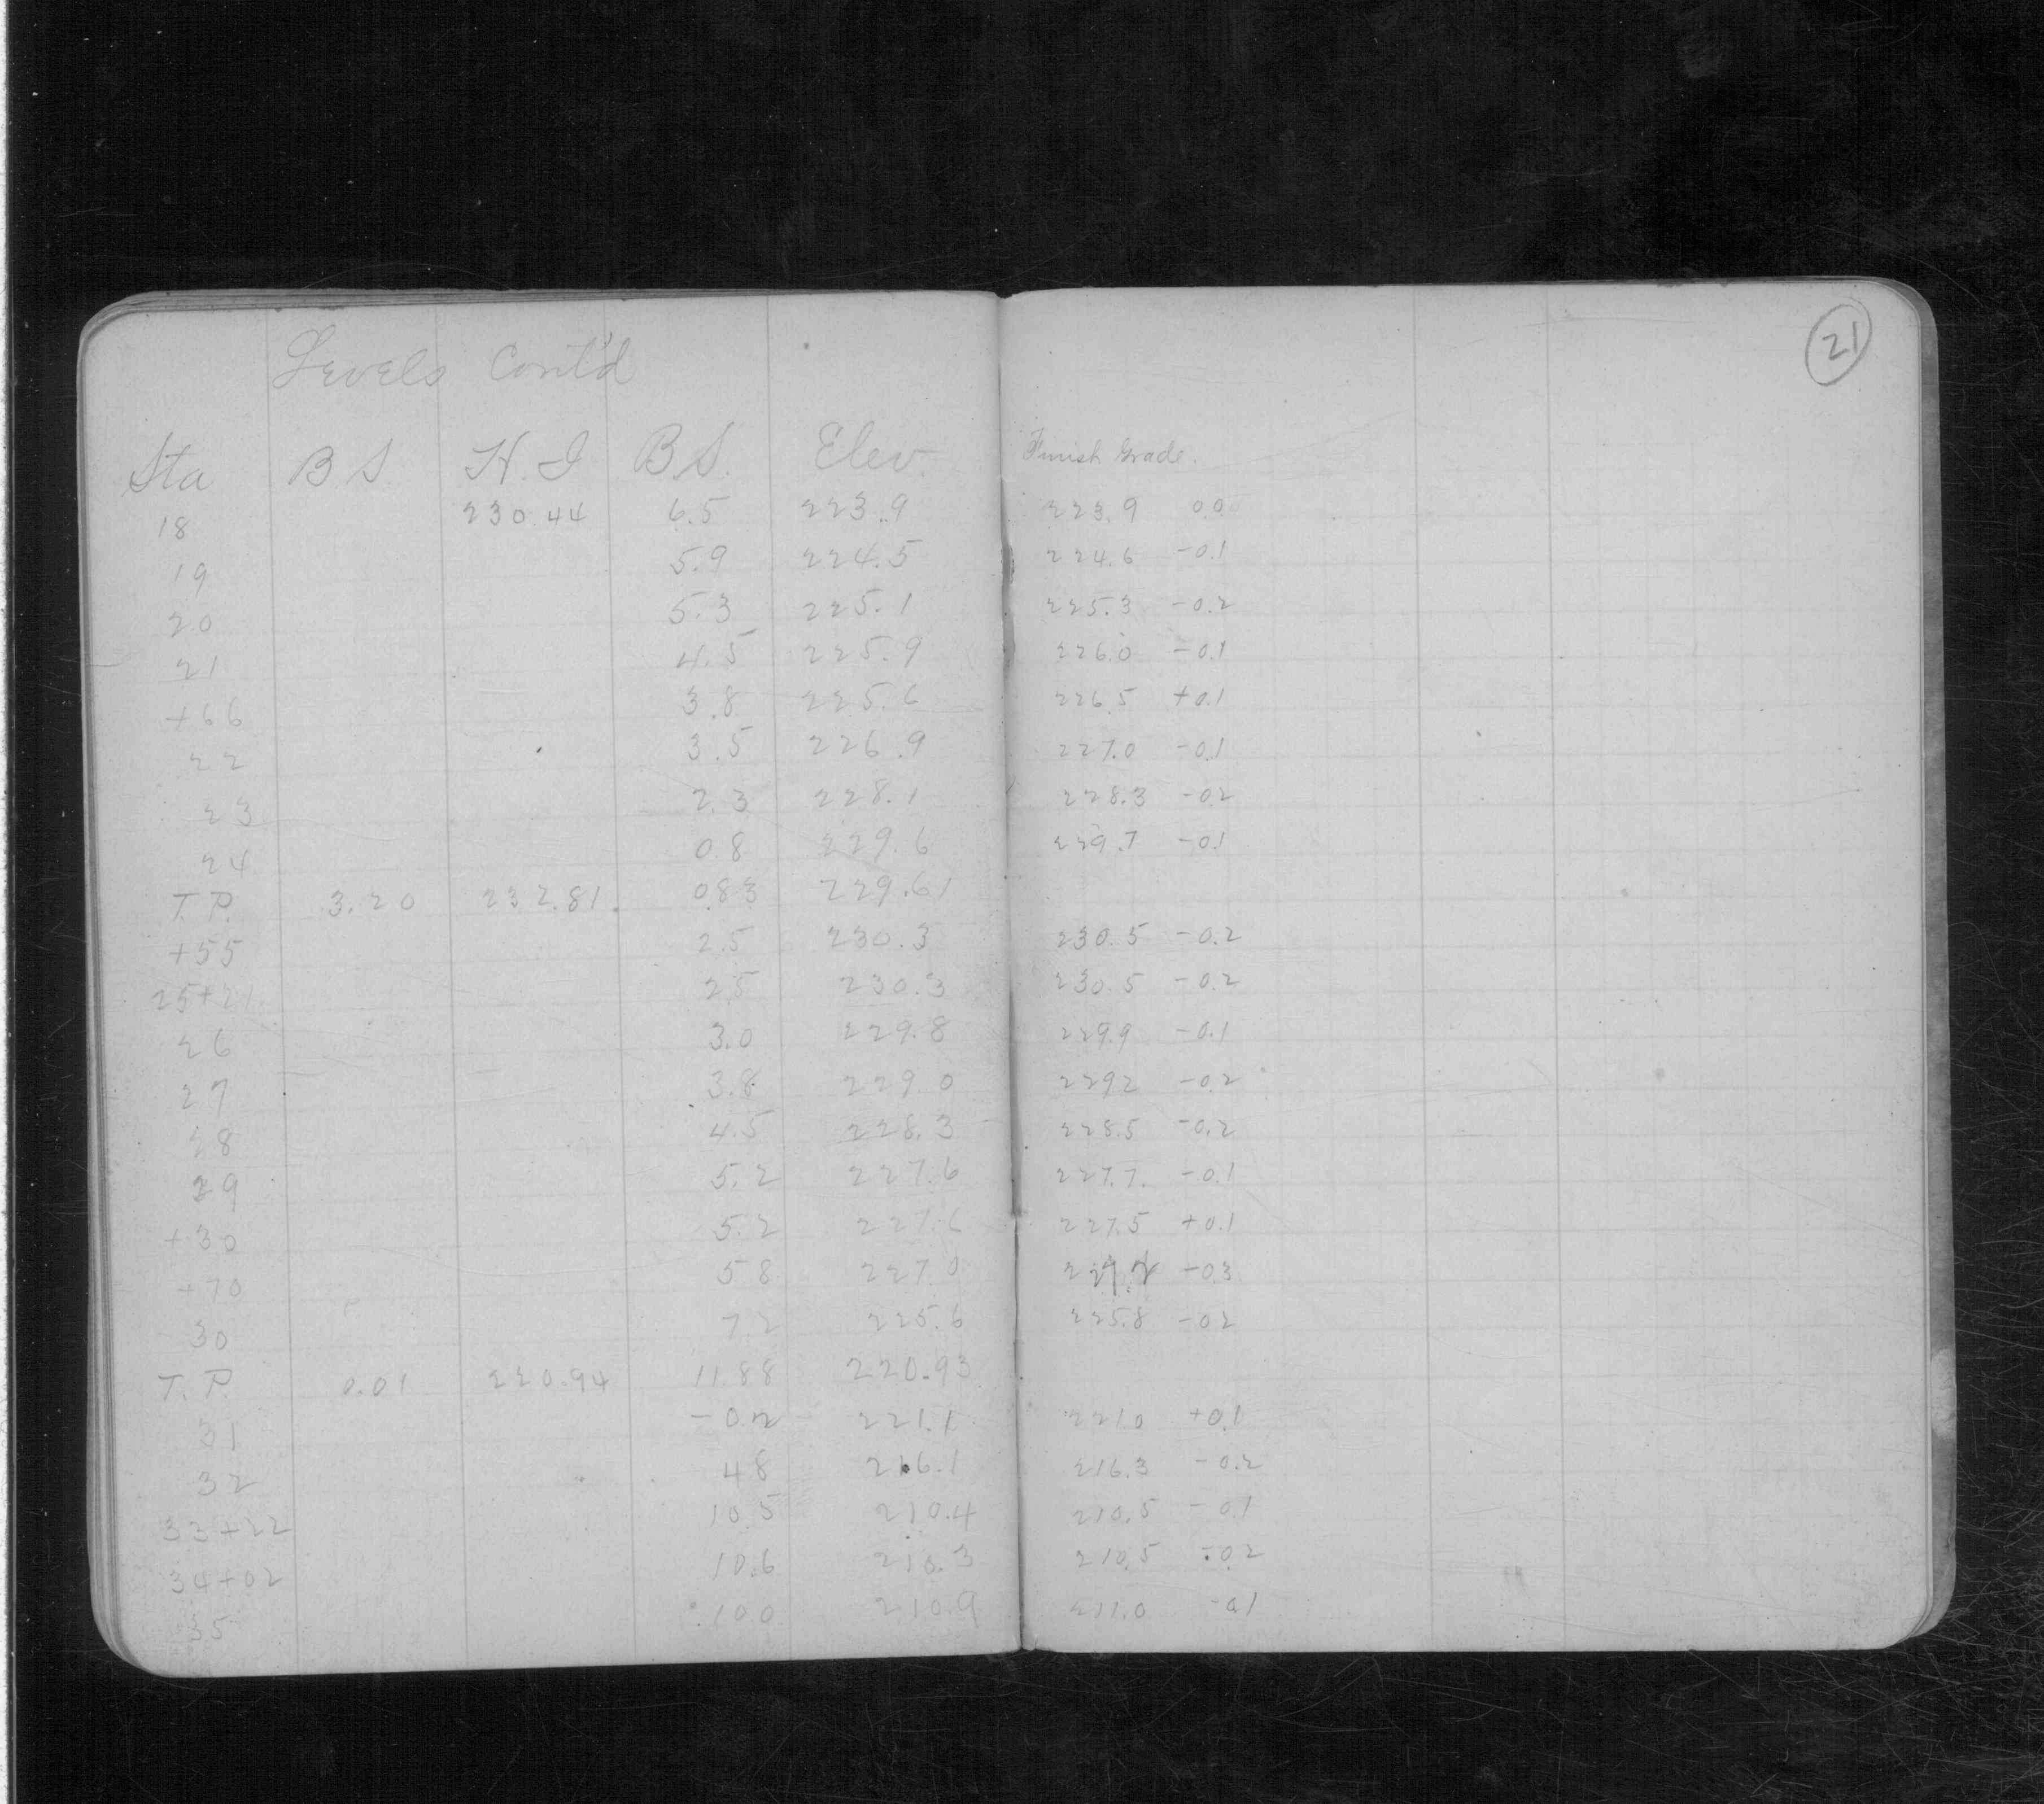 Levels Cont'd
21
Sta B.S. H.I B.S. Elev. Finish Grade.
18 230.44 6.5 223.9 223.9 0.0
19 5.9 224.5 224.6 -0.1
20 5.3 225.1 225.3 -0.2
21 4.5 225.9 226.0 -0.1
+66 3.8 225.6 226.5 +0.1
22 3.5 226.9 227.0 -0.1
23 2.3 228.1 228.3 -0.2
24 0.8 229.6 229.7 -0.1
T.P. 3.20 232.81 0.83 229.61
+55 2.5 230.3 230.5 -0.2
25+21 2.5 230.3 230.5 -0.2
26 3.0 229.8 229.9 -0.1
27 3.8 229.0 229.2 -0.2
28 4.5 228.3 228.5 -0.2
29 5.2 227.6 227.7 -0.1
+30 5.2 227.6 227.5 +0.1
+70 5.8 227.0 -0.3
30 7.2 225.6 225.8 -0.2
T.P. 0.01 220.94 11.88 220.93
31 -0.2 221.1 221.0 +0.1
32 4.8 216.1 216.3 -0.2
33+22 10.5 210.4 210.5 -0.1
34+02 10.6 210.3 210.5 -0.2
35 10.0 210.9 211.0 -0.1